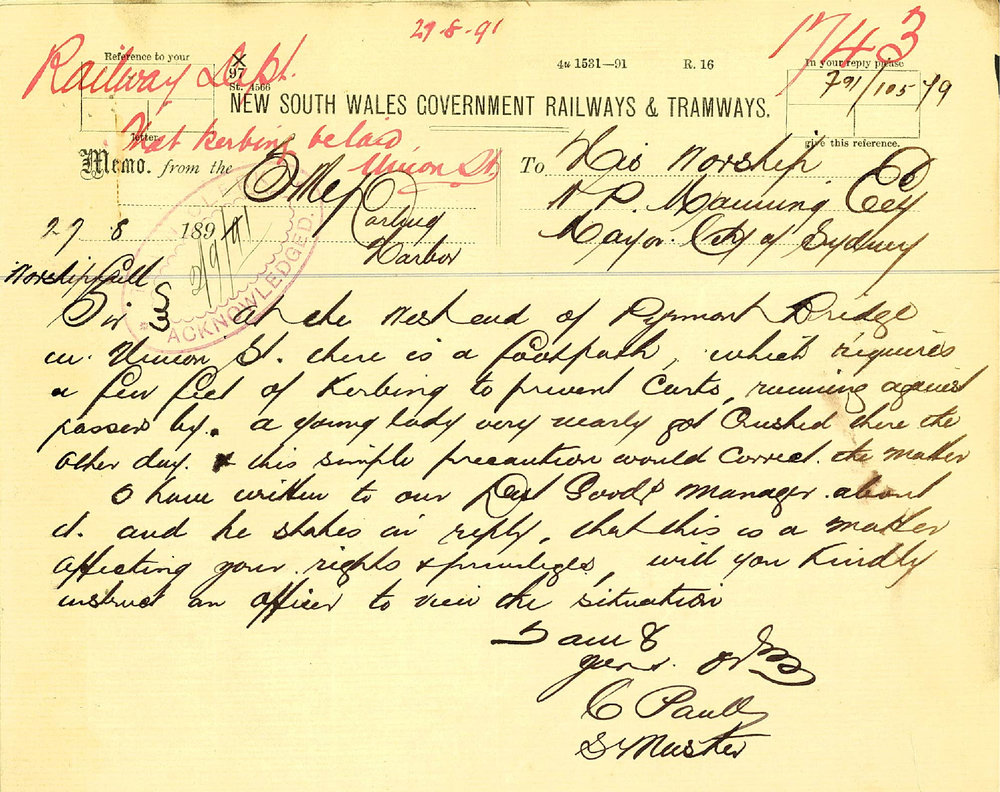 27-8-91
1743
Railway Dept.
Reference to your
letter
X
97
St. 1566
4u 1531—91 R. 16
In your reply please
791/105/79
give this reference.
NEW SOUTH WALES GOVERNMENT RAILWAYS & TRAMWAYS.
That kerbing be laid
Union St.
Memo. from the
Darling
Harbor
To His Worship
W P. Manning Esq
Mayor City of Sydney
27 8 189
2/9/91
ACKNOWLEDGED
Worshipfull
Sir
At the West end of Pyrmont Bridge
in Union St. there is a footpath, which requires
a few feet of Kerbing to prevent Carts, running against
passer by. a young lady very nearly got Crushed there the
other day. & this simple precaution would correct the matter
I have written to our Dist Goods manager about
it. and he states in reply, that this is a matter
affecting your rights & privileges, will you Kindly
instruct an officer to view the situation
I am &
yours
C Paull
S Master